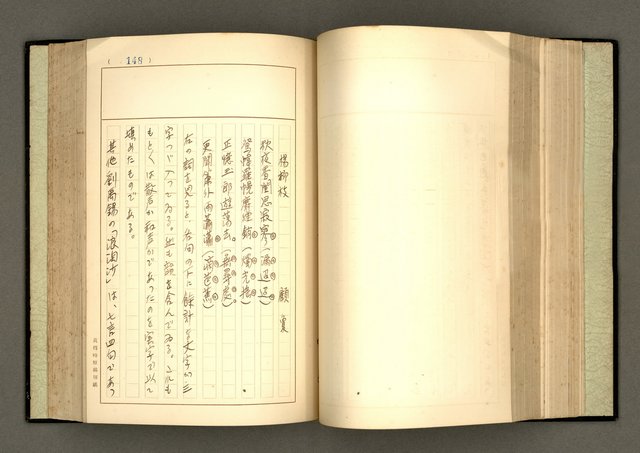 (148)
楊柳枝　　　　顧夐
秋夜香閨思寂寥(漏迢迢)
鴛幃羅幌麝煙銷(燭光搖)
正憶玉郎遊蕩去(無尋處)
更聞簾外雨蕭蕭(滴芭蕉)
左の詞を見ると、各句の下に餘計な文字が三
字づつ入つてゐる。然も韻を含んでゐる。これも
もとくは散声か和声かであつたのを実字で以て
填めたものである。
其他劉禹錫の「浪淘沙」は、七言四句であつ